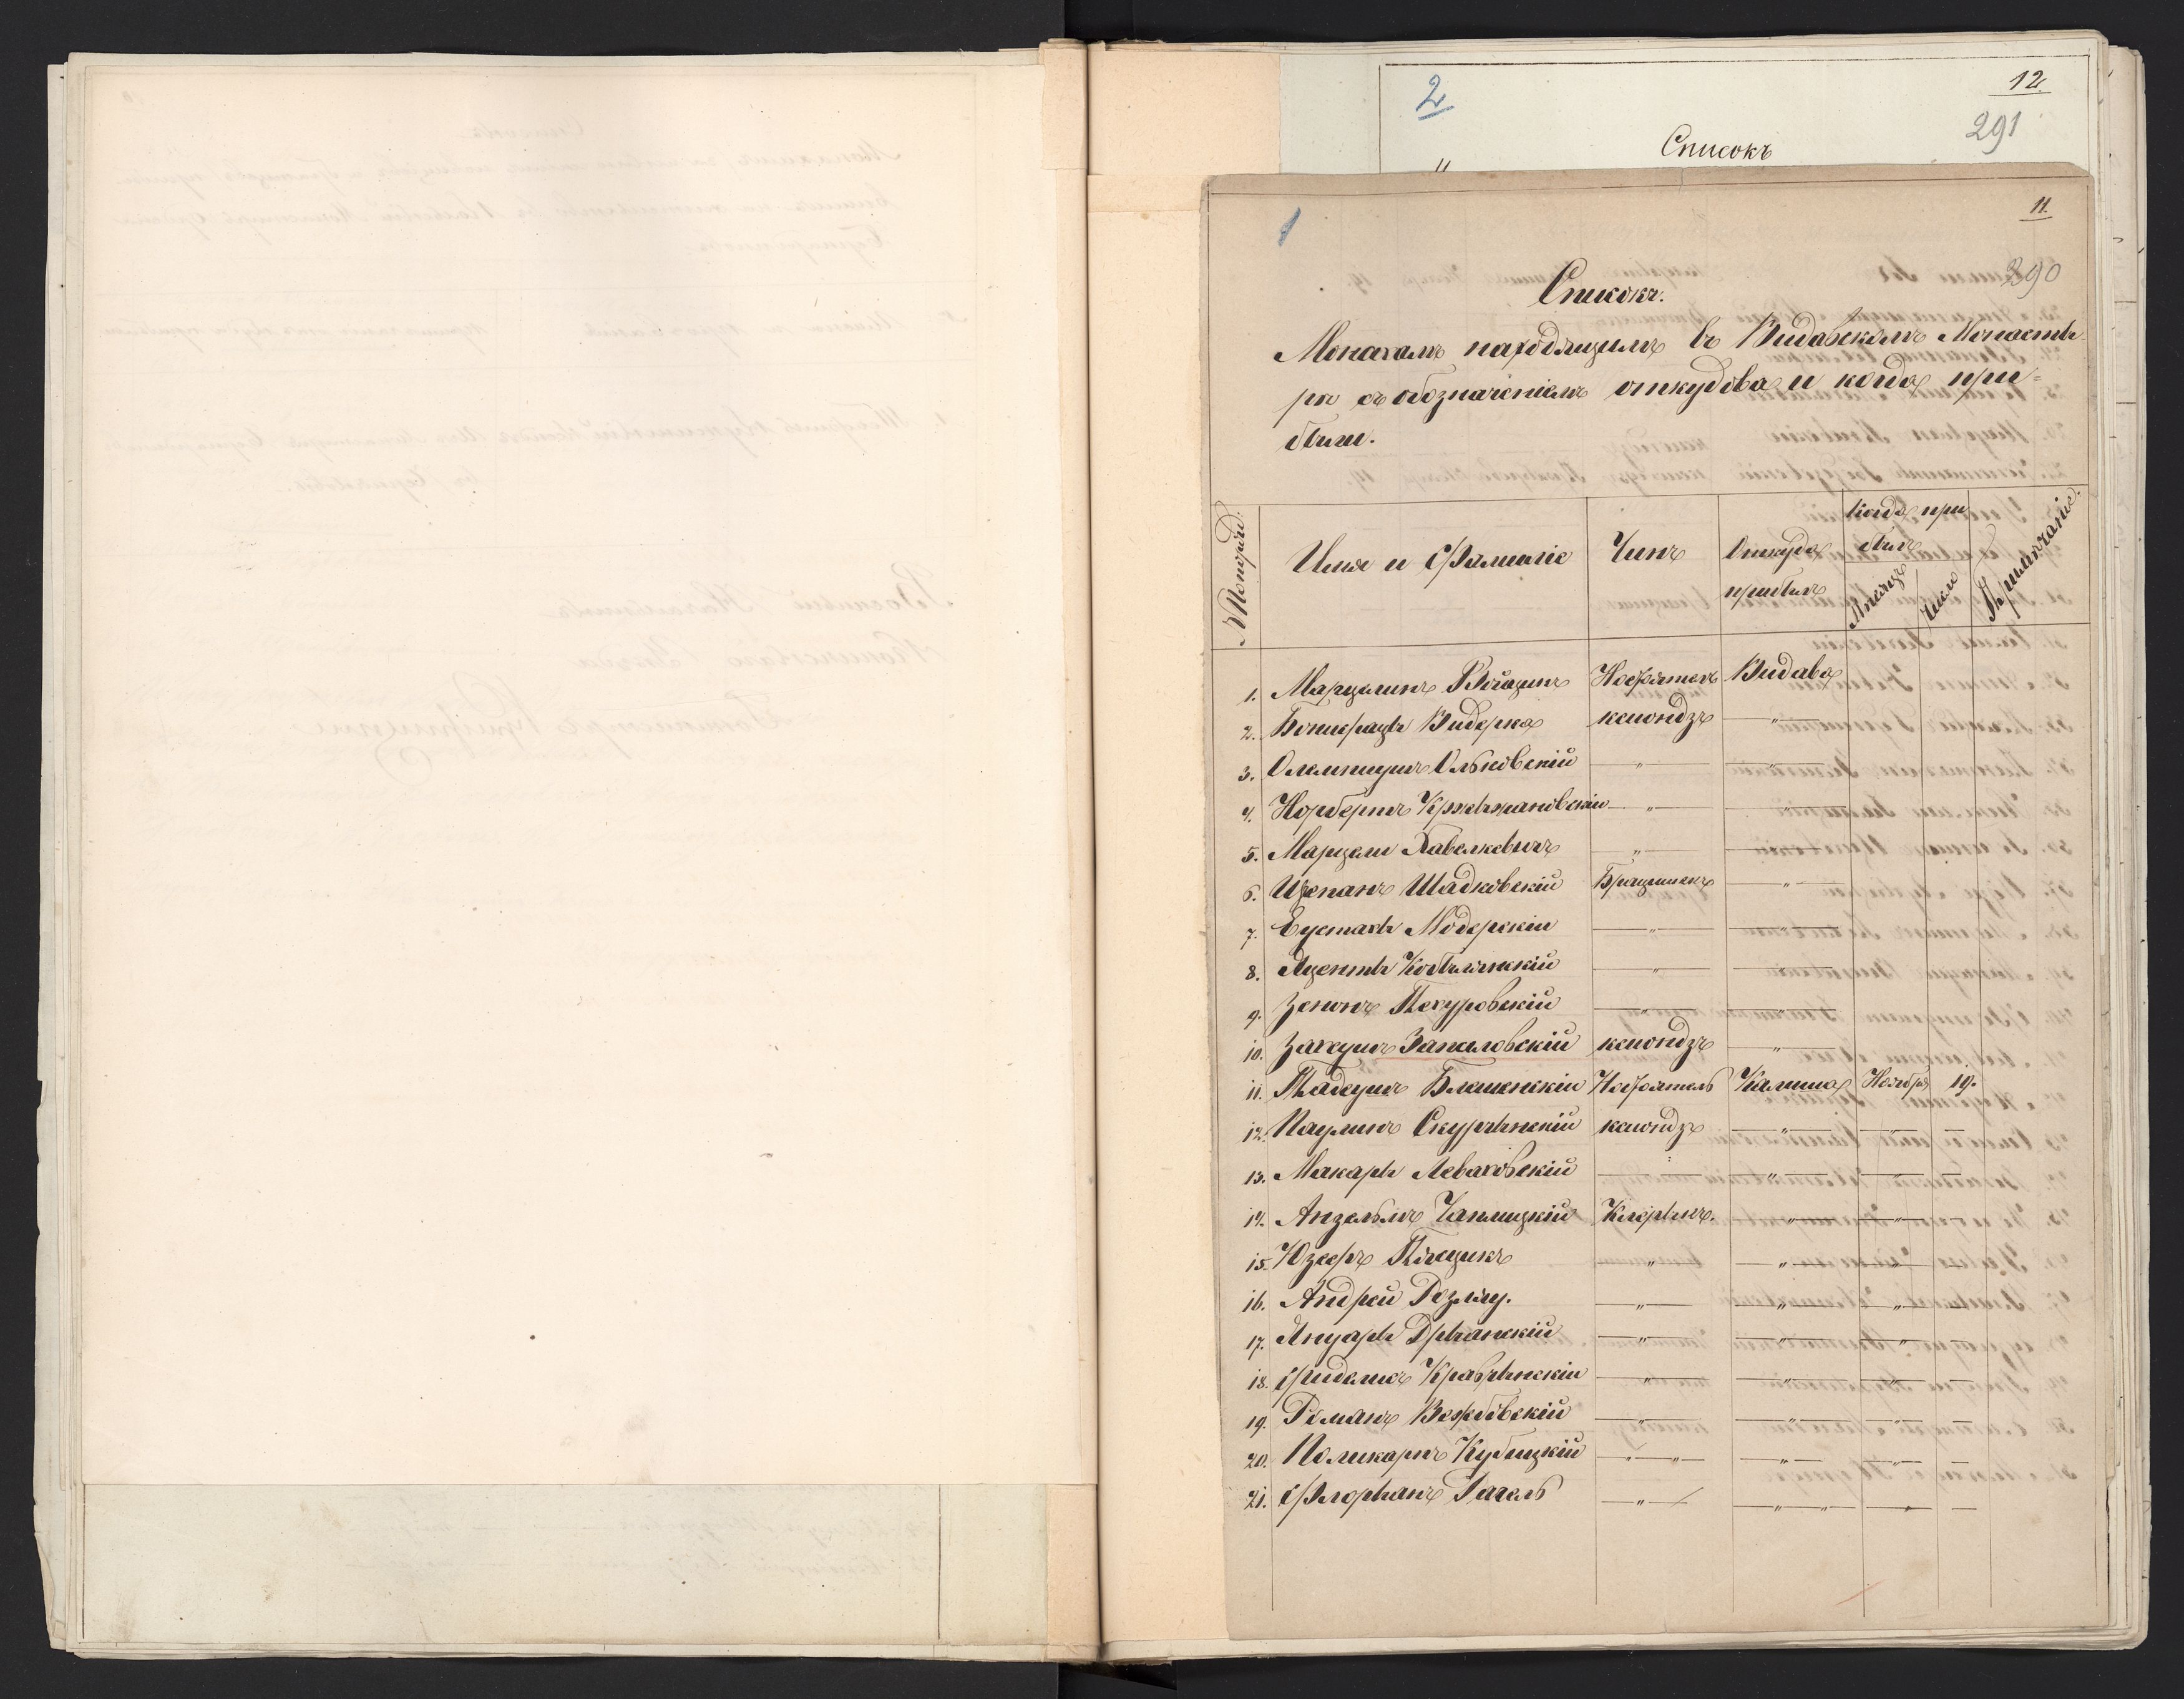 2
12
291
Списокъ
"
1
11.
290
Списокъ.
Монахамъ находящимъ въ Видавскомъ Монасты-
рѣ съ обозначеніемъ откудова и когда при=
были.
№ Попоряд:
Имя и Фамиліе
Чинъ
Откуда прибылъ
Когда прибылъ
Мѣсяцъ
Число
Примѣчаніе.
1. Марцелинъ Настоятель Видава
2. Бонифацы Видерка ксіондзъ — " —
3. Олемпіушъ Ольковскій — " — — " —
4. Норбертъ Кржыжановскій — " — — " —
5. Марцели Павелкевичъ — " — — " —
6. Щепанъ Шадковскій Брацишекъ — " —
7. Еустахы Модерскій — " — — " —
8. Яценты Кобылинскій — " — — " —
9. Зенонъ Пекуровскій — " — — " —
10. Захеушъ Запаловскій ксіондзъ — " —
11. Тадеушъ Блешенскій Настоятель Калиша Ноября 19.
12. Паулинъ Скурчынскій ксіондзъ — " — — " — —
13. Макары Леваховскій — " — — " — — " — —
14. Анзельмъ Чаплицкій Клерыкъ. — " — — " — —
15. Юзефъ — " — — " — — " — —
16. Андрей — " — — " — — " — —
17. Януары — " — — " — — " — —
18. Фиделисъ Кравчынскій — " — — " — — " — —
19. Романъ Вержбовскій — " — — " — — " — —
20. Поликарпъ Кубицкій — " — " — — " — — " — —
21. Флорыанъ Гагель — " — — " — " — — " — —